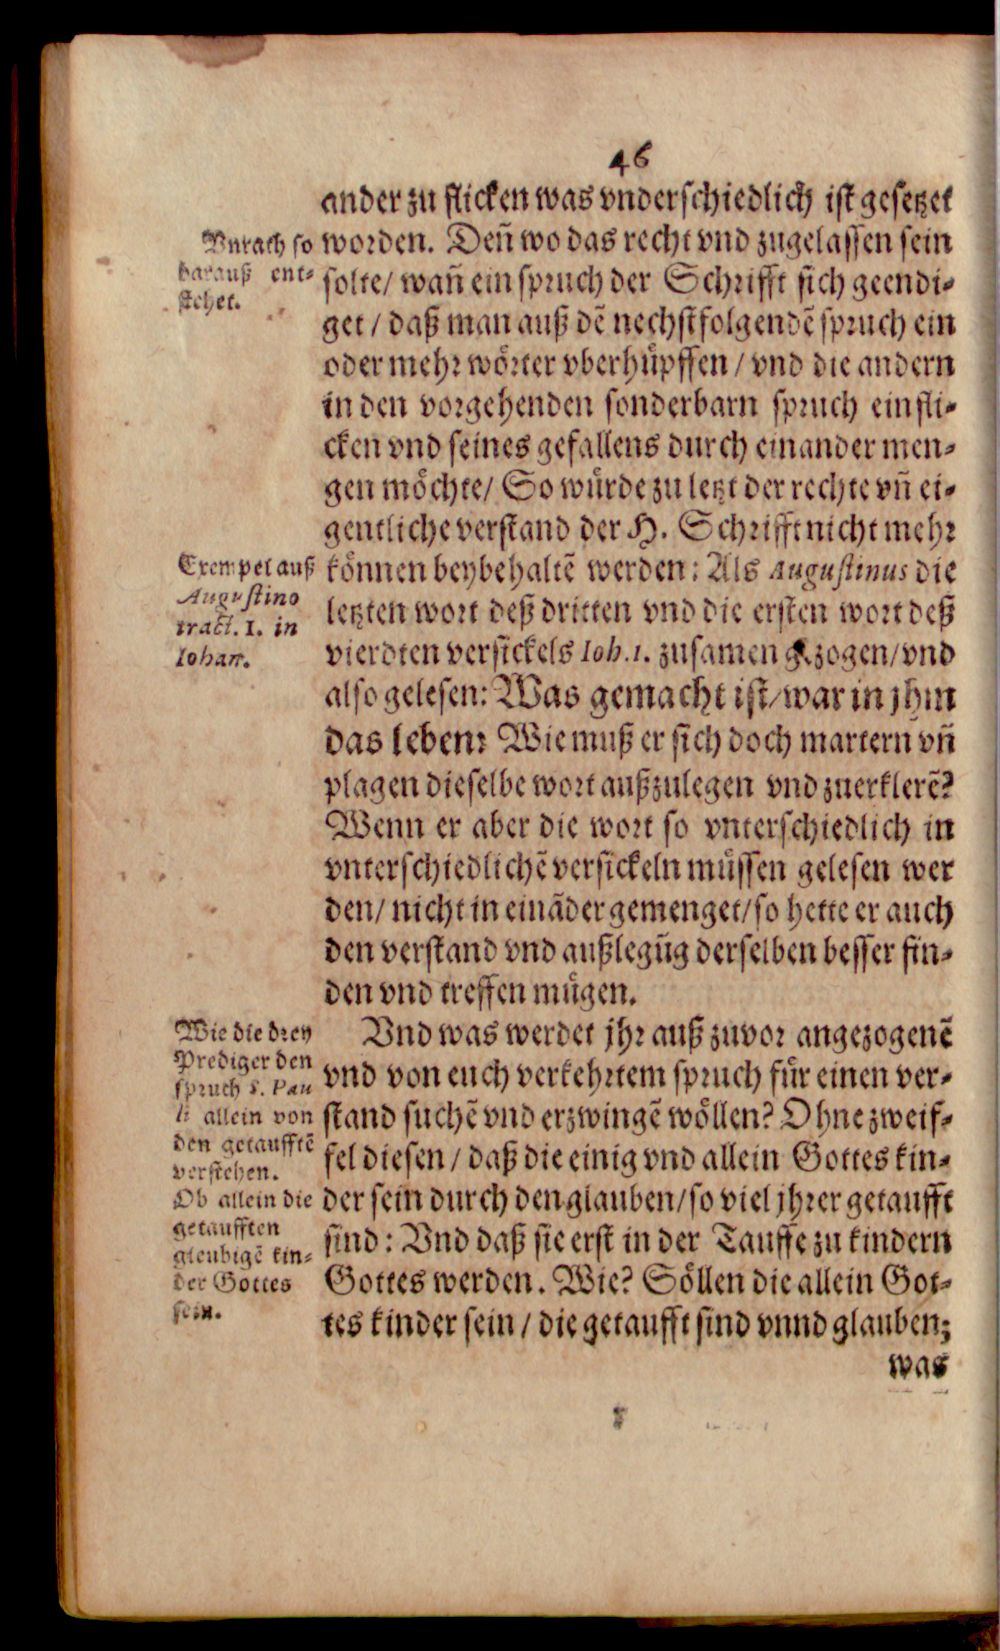 46
ander zu flicken was vnderschiedlich ist gesetzet
worden. Deñ wo das recht vnd zugelassen sein
solte/ wañ ein spruch der Schrifft sich geendi-
get / daß man auß dẽ nechstfolgendẽ spruch ein
oder mehr wörter vberhüpffen / vnd die andern
in den vorgehenden sonderbarn spruch einfli-
cken vnd seines gefallens durch einander men-
gen möchte/ So würde zu letzt der rechte vñ ei-
gentliche verstand der H. Schrifft nicht mehr
können beybehaltẽ werden: Als Augustinus die
letzten wort deß dritten vnd die ersten wort deß
vierdten versickels Ioh.1. zusamen gezogen/ vnd
also gelesen: Was gemacht ist/ war in jhm
das leben: Wie muß er sich doch martern vñ
plagen dieselbe wort außzulegen vnd zuerklerẽ?
Wenn er aber die wort so vnterschiedlich in
vnterschiedlichẽ versickeln müssen gelesen wer
den/ nicht in einãder gemenget/ so hette er auch
den verstand vnd außlegũg derselben besser fin-
den vnd treffen mügen.
Vnd was werdet jhr auß zuvor angezogenẽ
vnd von euch verkehrtem spruch für einen ver-
stand suchẽ vnd erzwingẽ wöllen? Ohne zweif-
fel diesen / daß die einig vnd allein Gottes kin-
der sein durch den glauben/ so viel jhrer getaufft
sind: Vnd daß sie erst in der Tauffe zu kindern
Gottes werden. Wie? Söllen die allein Got-
tes kinder sein / die getaufft sind vnnd glauben;
was
Vnrath so
darauß ent-
stehet.
Exempel auß
Augustino
tract. 1. in
Iohan.
Wie die drey
Prediger den
spruch S. Pau
li allein von
den getaufftẽ
verstehen.
Ob allein die
getaufften
gleubigẽ kin-
der Gottes
sein.